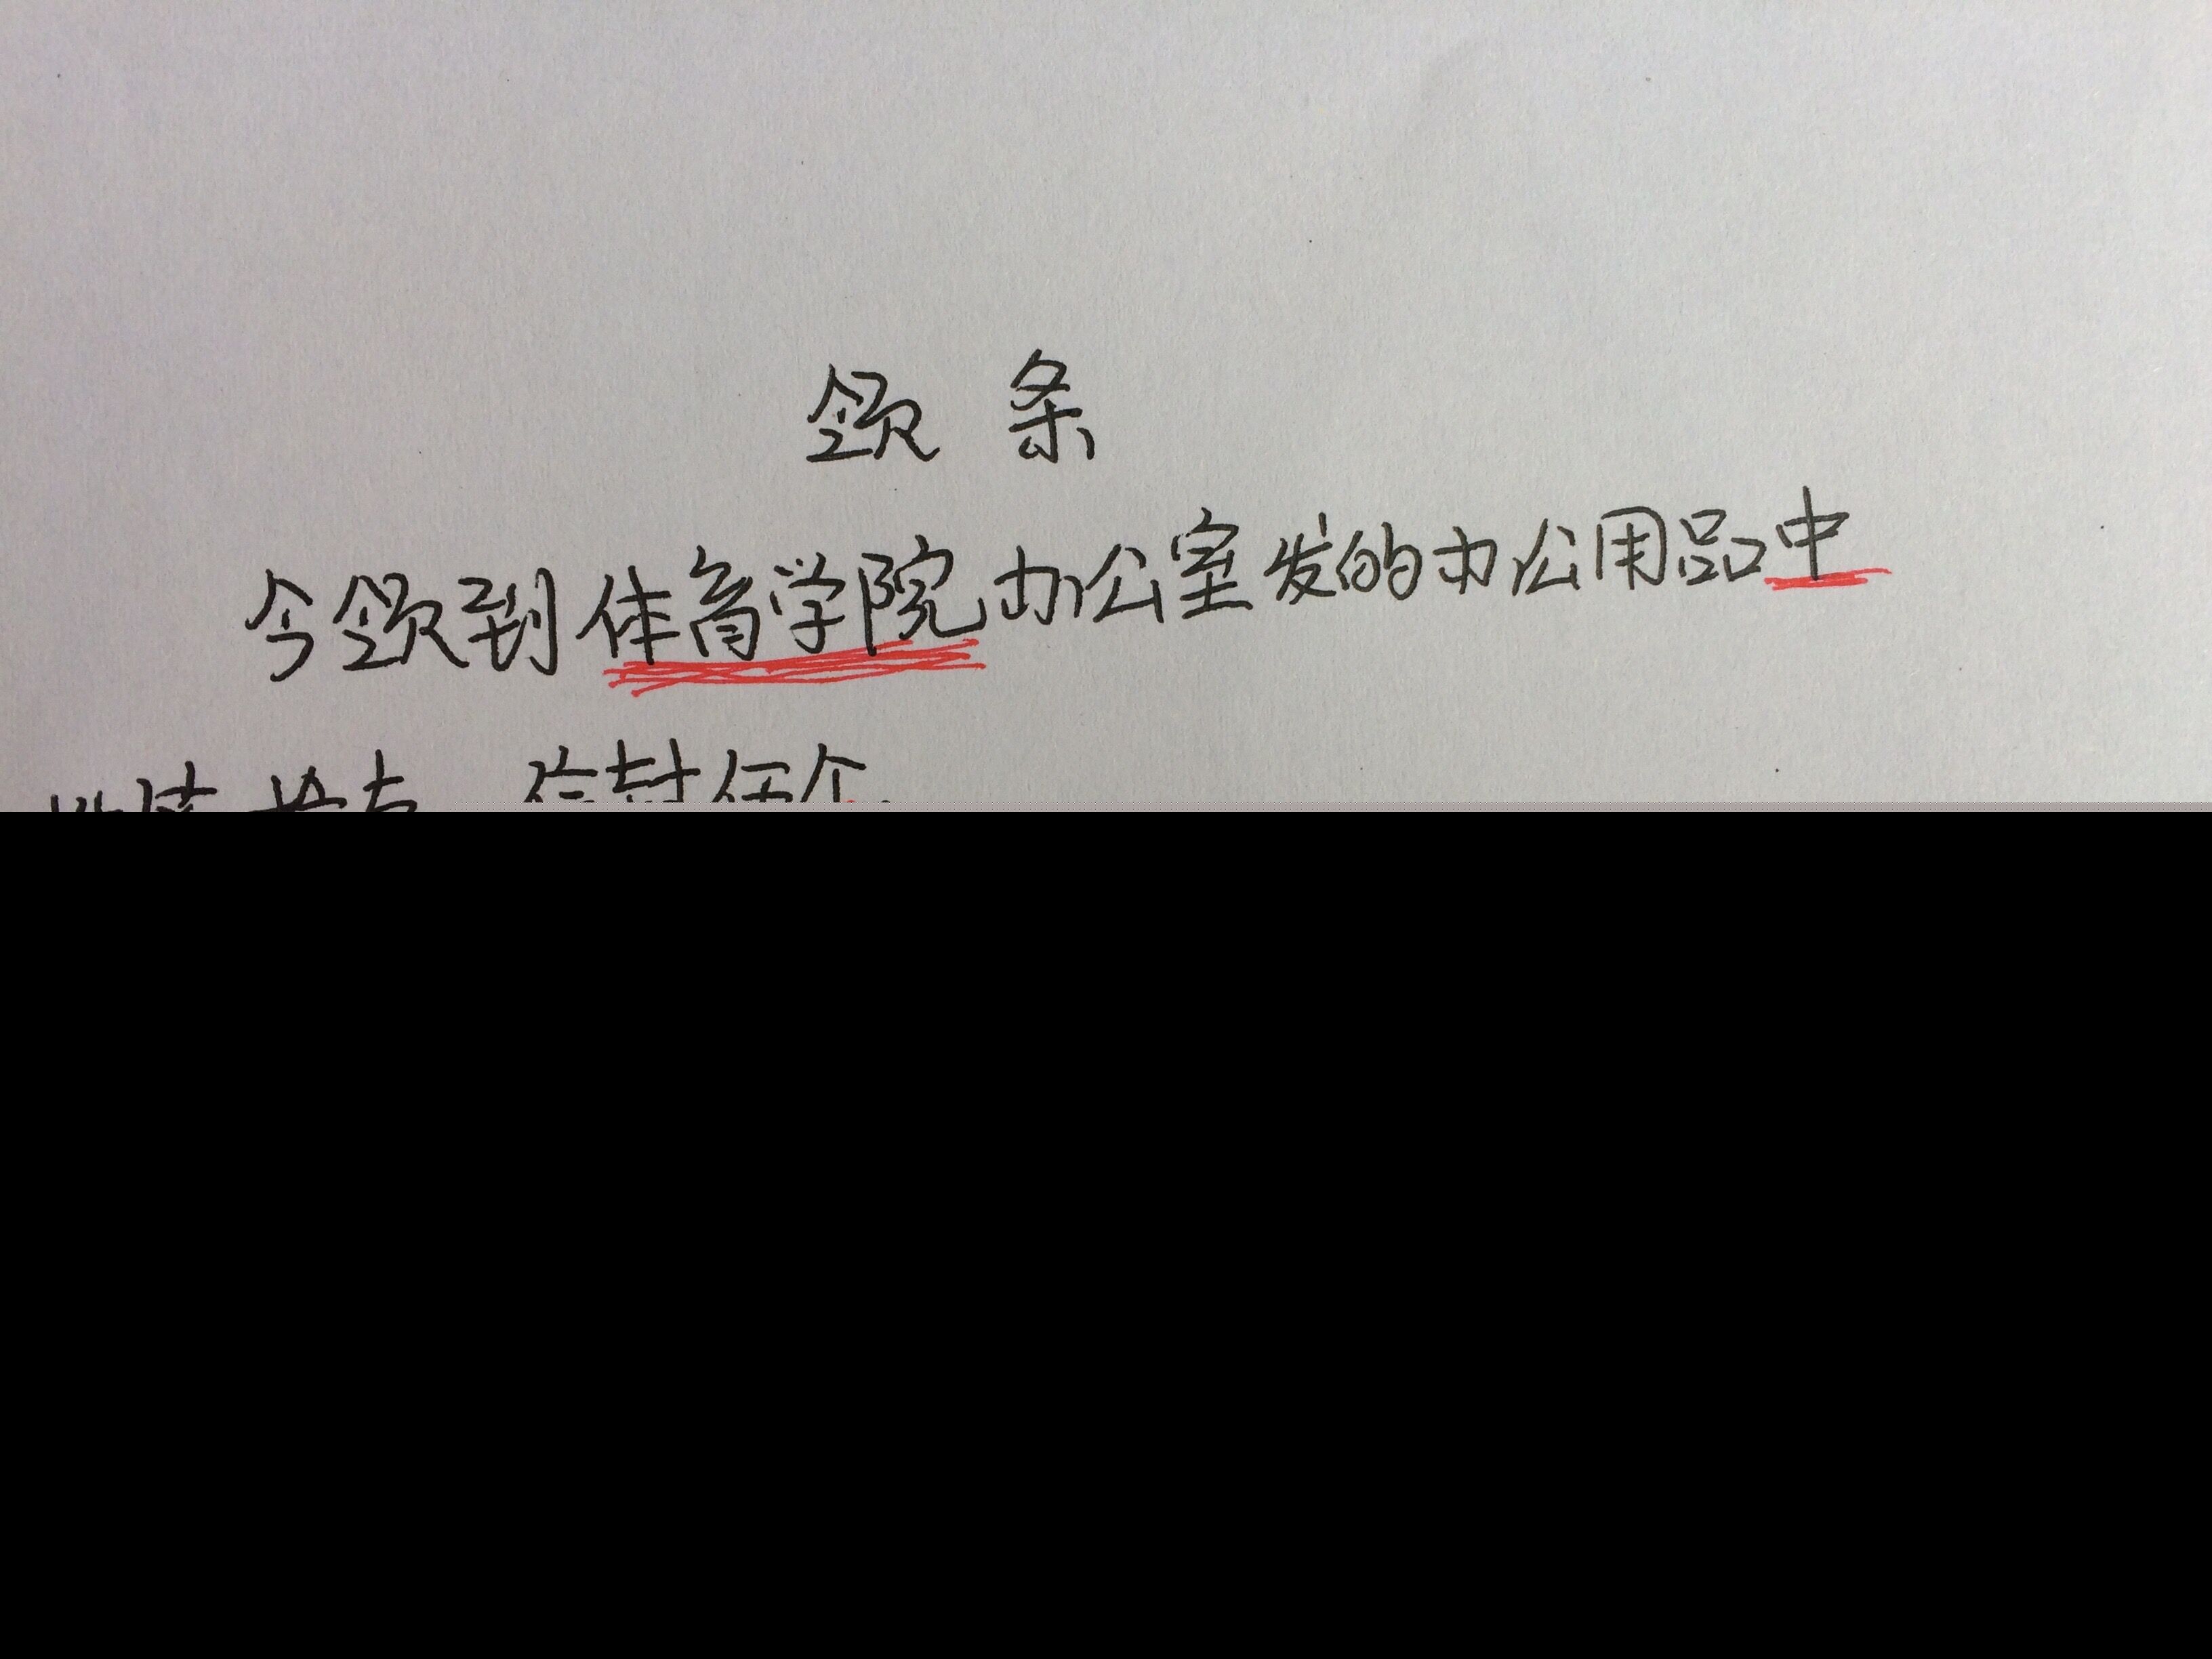 领条
今领到体育学院办公室发的办公用品中
信封伍个